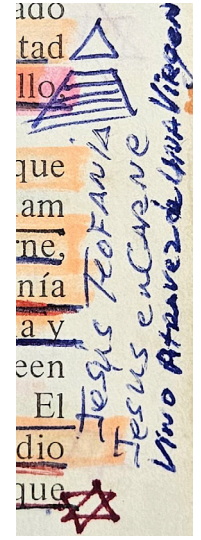 ado
tad
llo,
que
am
rne,
nía
a y
een
El
dio
que
Jesus TEOFANÍA
Jesus enCARNE
Vino Atravez de UNA Virgen